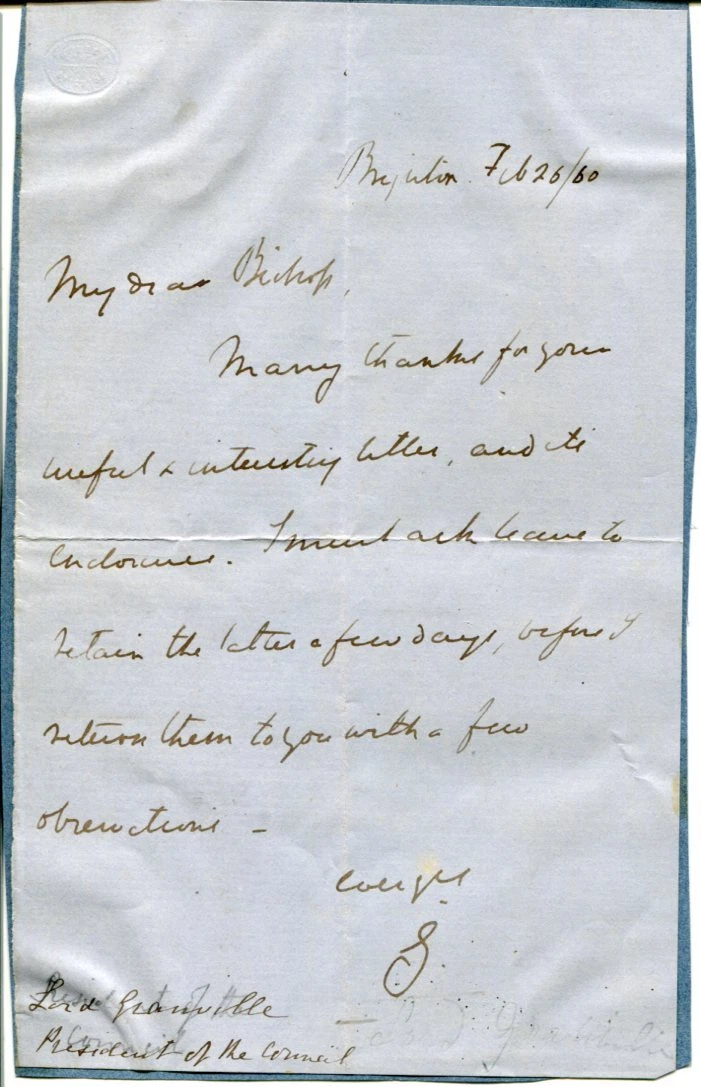 Brighton Feb 26/60
My dear Bishop,
Many thanks for your
useful & interesting letter, and its
enclosures. I must ask leave to
retain the latter a few days, before I
return them to you with a few
observations -
G.
Lord Granville
President of the Council
Lord Granville